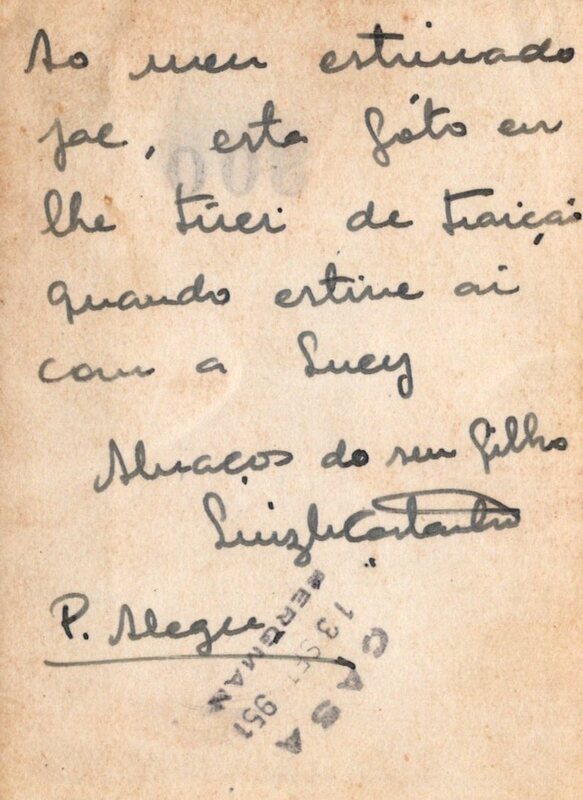 Ao meu estimado
pae, esta fóto eu
lhe tirei de traição
quando estive ai
com a Lucy
Abraços do seu filho
Luiz
P. Alegre,
CASA
BERGMAN
13 SET 951